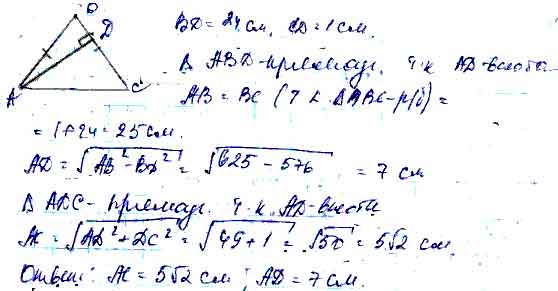 B
D
A
C
BD = 24 см, CD = 1 см.
В ABD - прямоуг. т.к. AD - высота
AB = BC (т.к. ΔABC - р/б) =
= 1 + 24 = 25 см.
AD = √AB² - BD² = √625 - 576 = 7 см
В ADC - прямоуг. т.к. AD - высота
AC = √AD² + DC² = √49 + 1 = √50 = 5√2 см
Ответ: AC = 5√2 см; AD = 7 см.